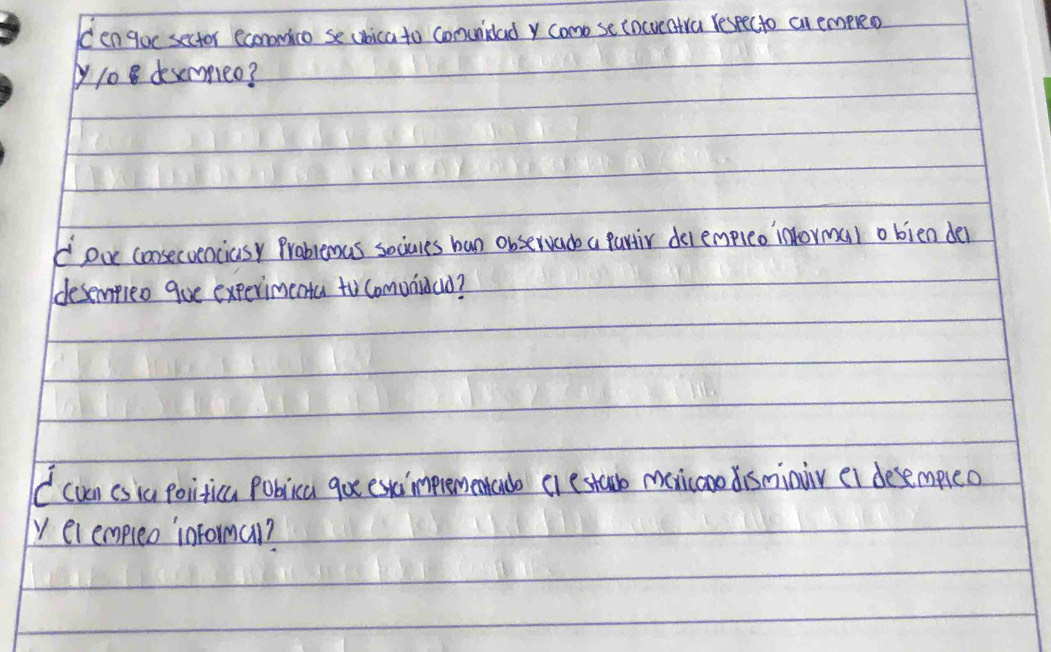 ¿en que sector economico se ubica tu comunidad y como se encuentra respecto al empleo
y los desempleo?
¿Que consecuencias y Problemas sociales han observado a partir del empleo informal o bien del
desempleo que experimenta tu comunidad?
¿Cual es la politica Publica que esta implementando el estado mexicano disminuir el desempleo
y el empleo informal?